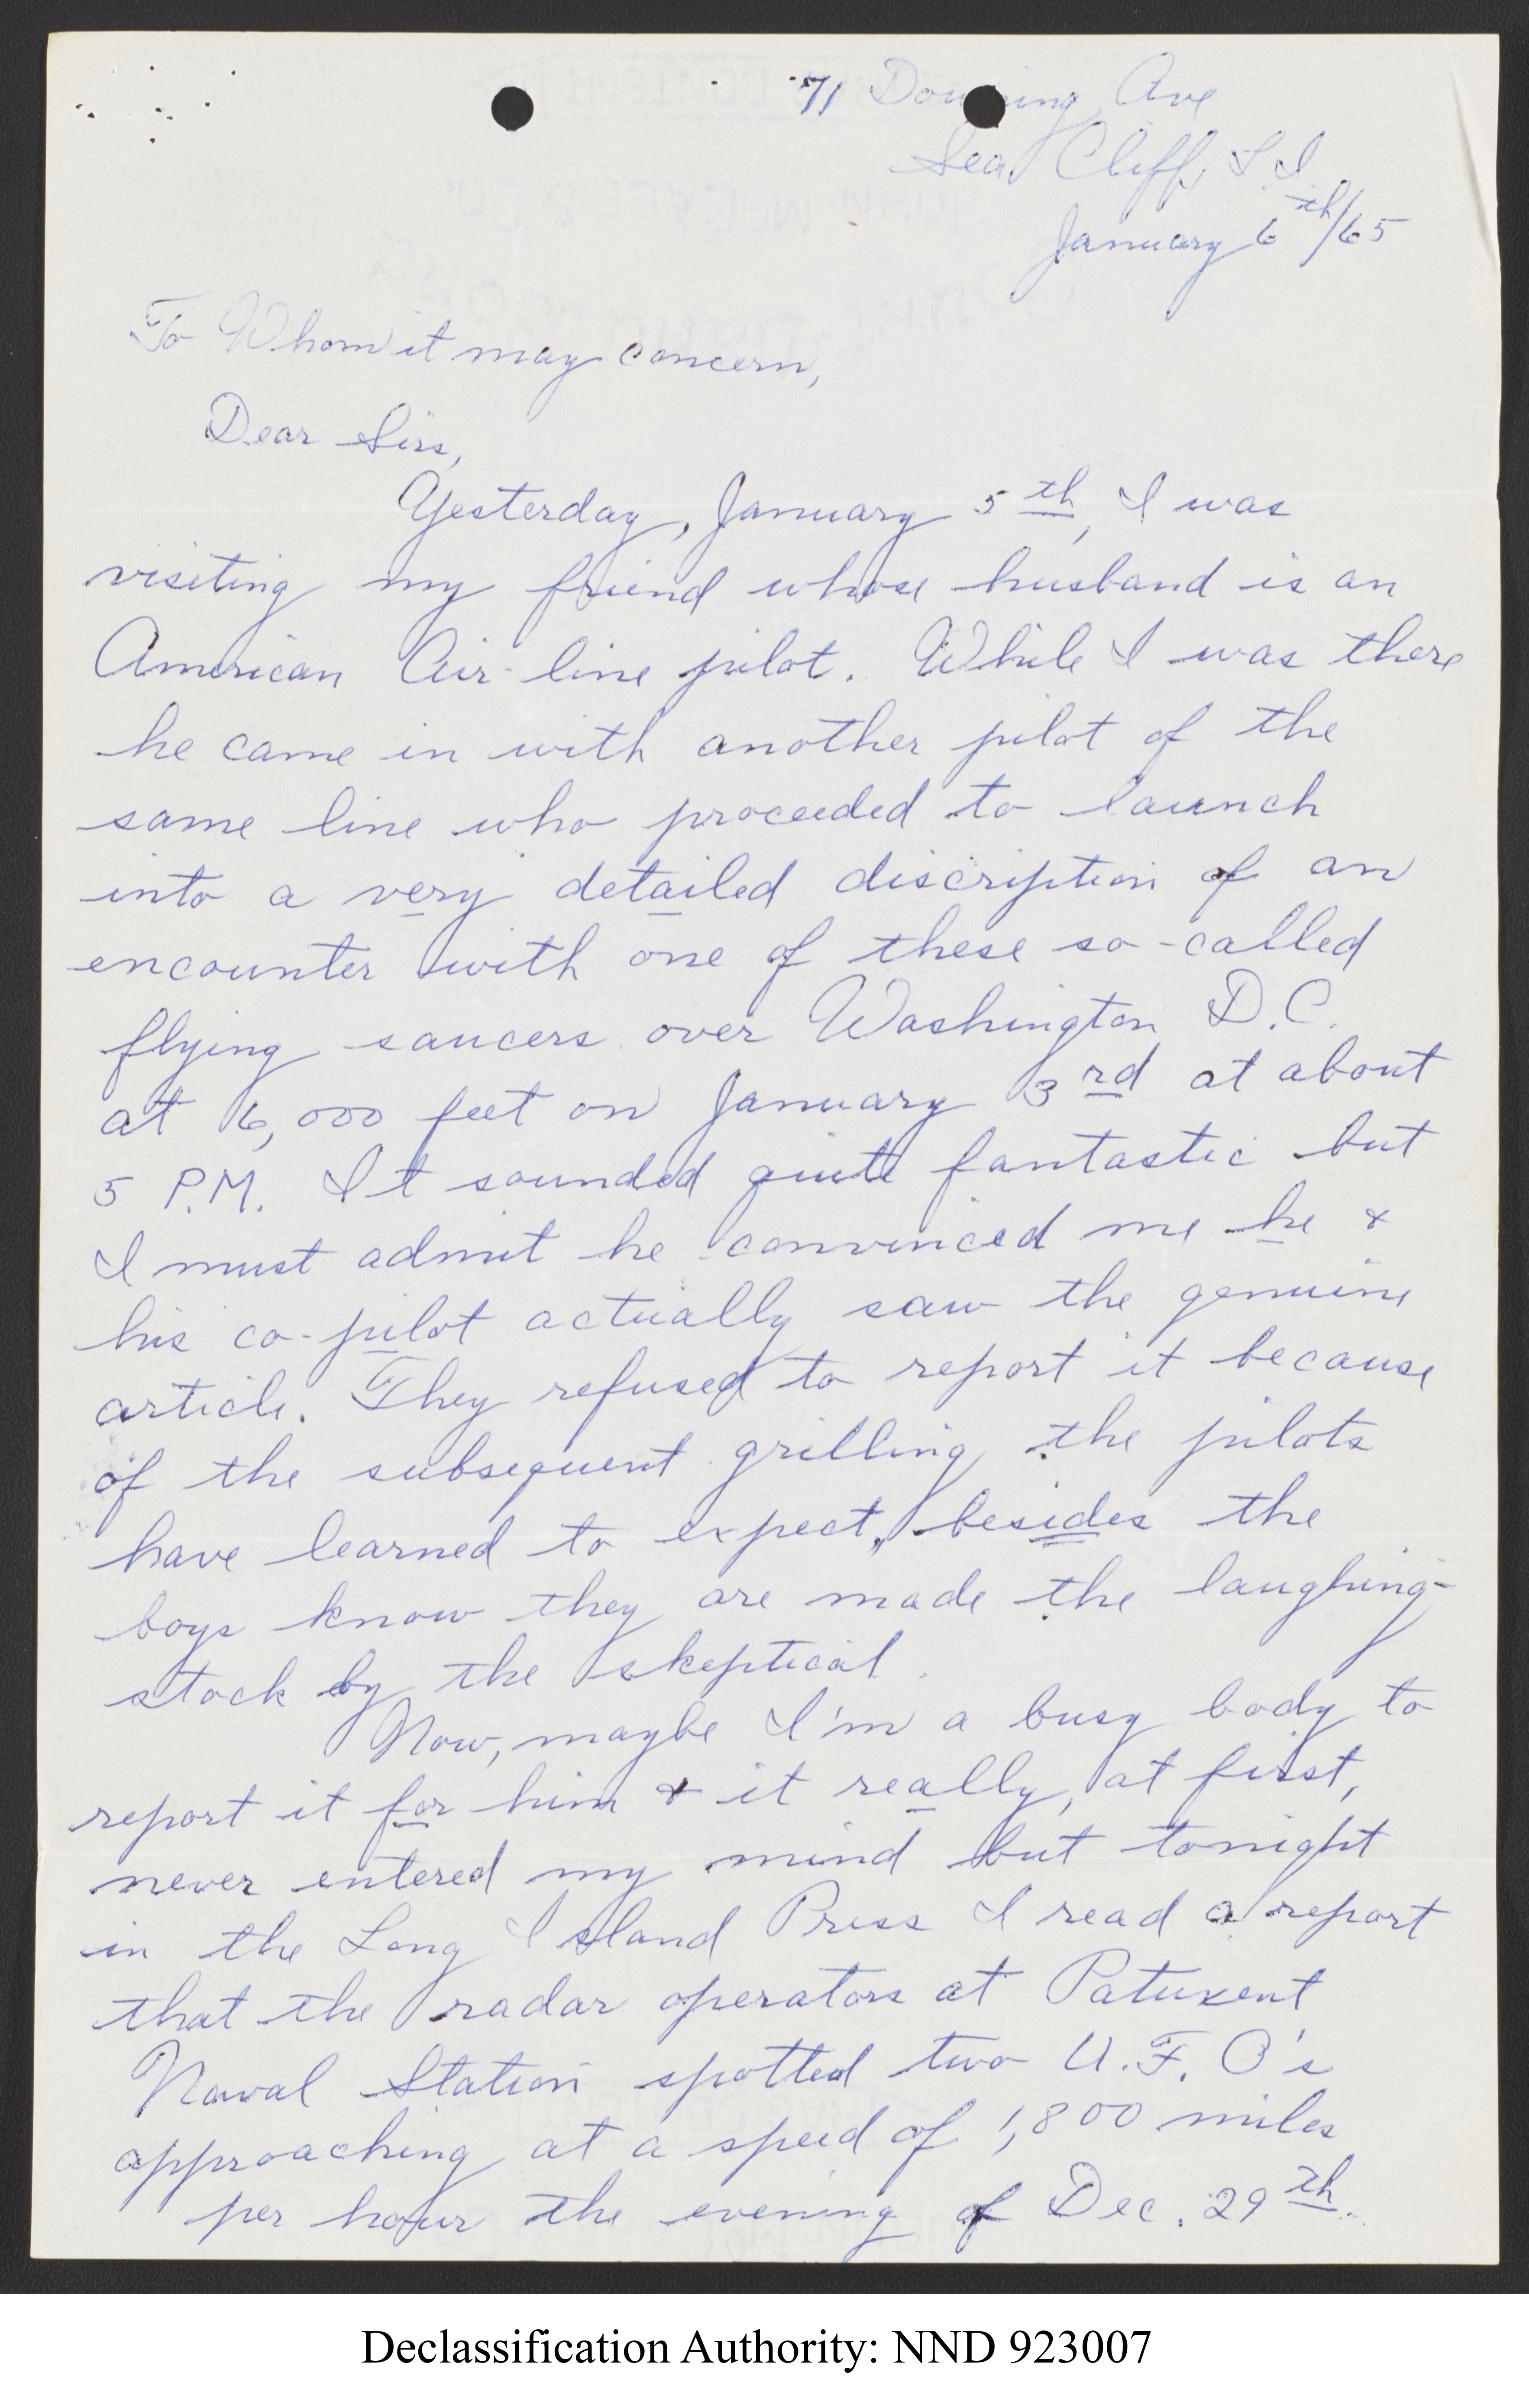 71 Downing Ave
Sea Cliff, L.I.
January 6th/65
To Whom it may concern,
Dear Sirs,
Yesterday, January 5th, I was
visiting my friend whose husband is an
American Air-line pilot. While I was there
he came in with another pilot of the
same line who proceeded to launch
into a very detailed discription of an
encounter with one of these so-called
flying saucers over Washington D.C.
at 6,000 feet on January 3rd at about
5 P.M. It sounded quite fantastic but
I must admit he convinced me he &
his co-pilot actually saw the genuine
article. They refused to report it because
of the subsequent grilling the pilots
have learned to expect, besides the
boys know they are made the laughing-
stock by the skeptical.
Now, maybe I'm a busy body to
report it for him & it really, at first,
never entered my mind but tonight
in the Long Island Press I read a report
that the radar operators at Patuxent
Naval Station spotted two U.F.O's
approaching at a speed of 1,800 miles
per hour the evening of Dec. 29th.
Declassification Authority: NND 923007